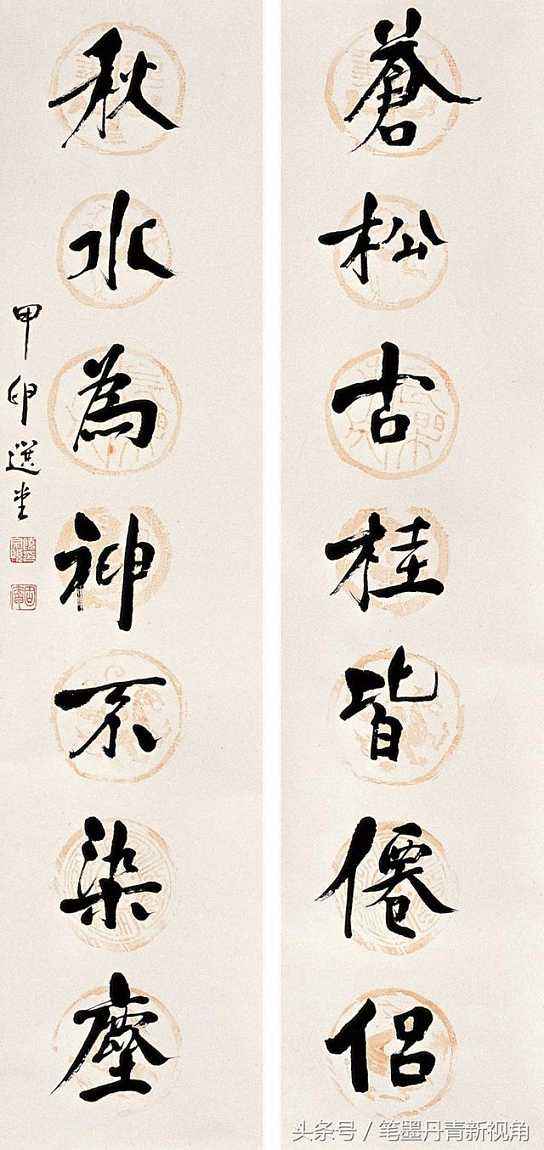 蒼松古桂皆僊侶
秋水為神不染塵
甲卯選堂
头条号／笔墨丹青新视角